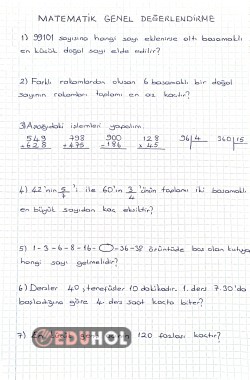 MATEMATİK GENEL DEĞERLENDİRME
1) 99101 sayısına hangi sayı eklenirse altı basamaklı
en küçük doğal sayı elde edilir?
2) Farklı rakamlardan oluşan 6 basamaklı bir doğal
sayının rakamları toplamı en az kaçtır?
3) Aşağıdaki işlemleri yapalım.
549 798 900 128 96 4 360 15
+628 -186 x 45
4) 42'nin 5/7'i ile 60'ın 3/4'ünün toplamı iki basamaklı
en büyük sayıdan kaç eksiktir?
5) 1-3-6-8-16- -36-38 örüntüde boş olan kutuya
hangi sayı gelmelidir?
6) Dersler 40, teneffüsler 10 dakikadır. 1. ders 7.30'da
başladığına göre 4. ders saat kaçta biter?
7) 120 fazlası kaçtır?
EDUHOL